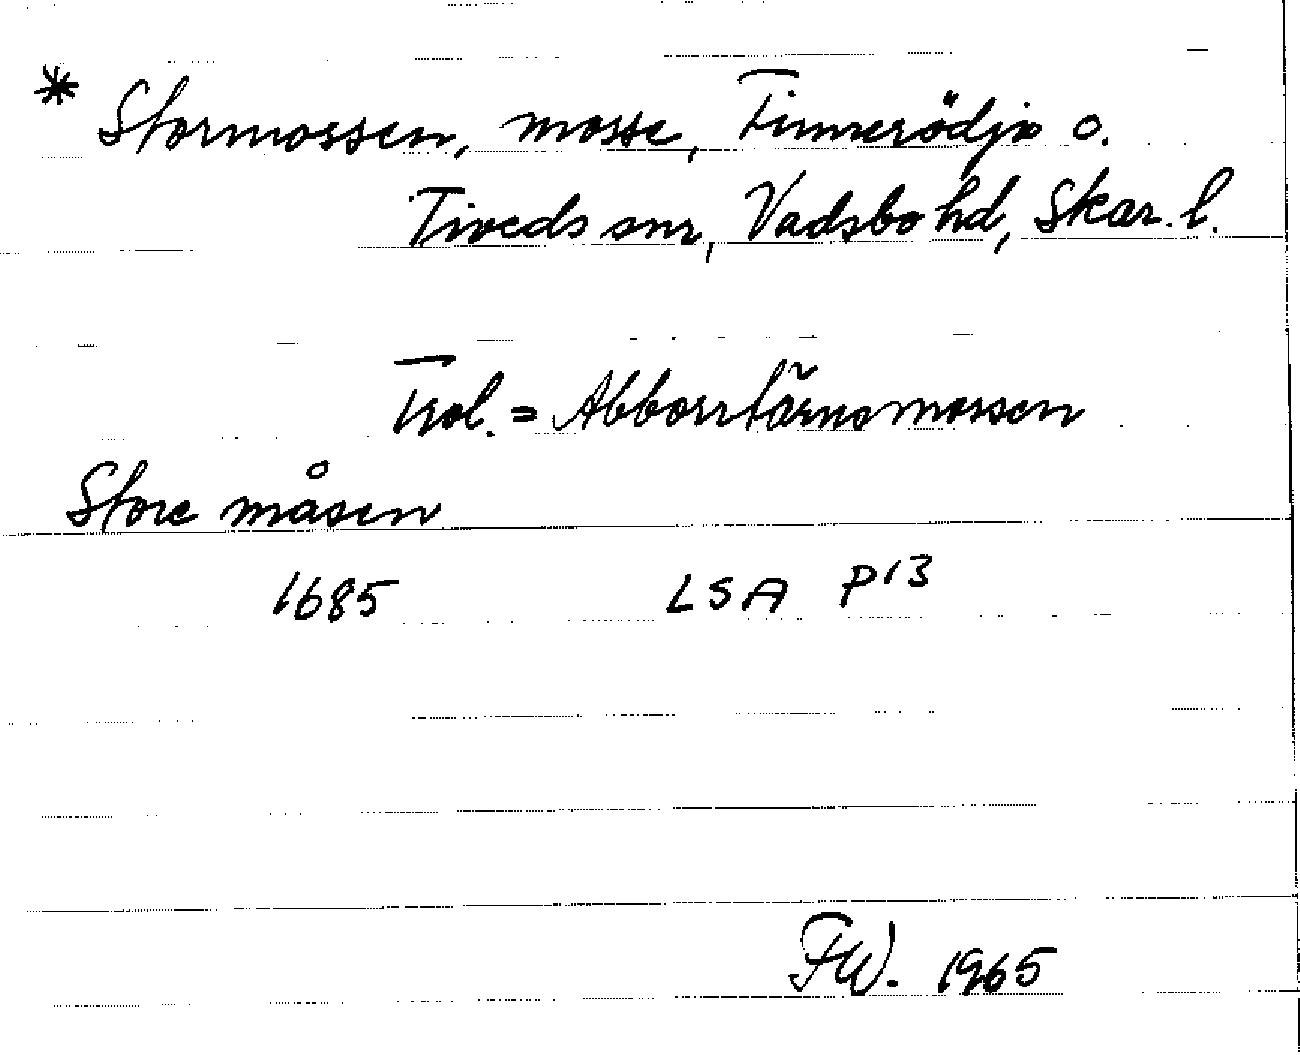 * Stormossen, mosse, Finnerödja o.
Tiveds snr, Vadsbo hd, Skar. l.
Trol. = Abborrtärnsmossen
Store måsen
1685 LSA P13
FW. 1965